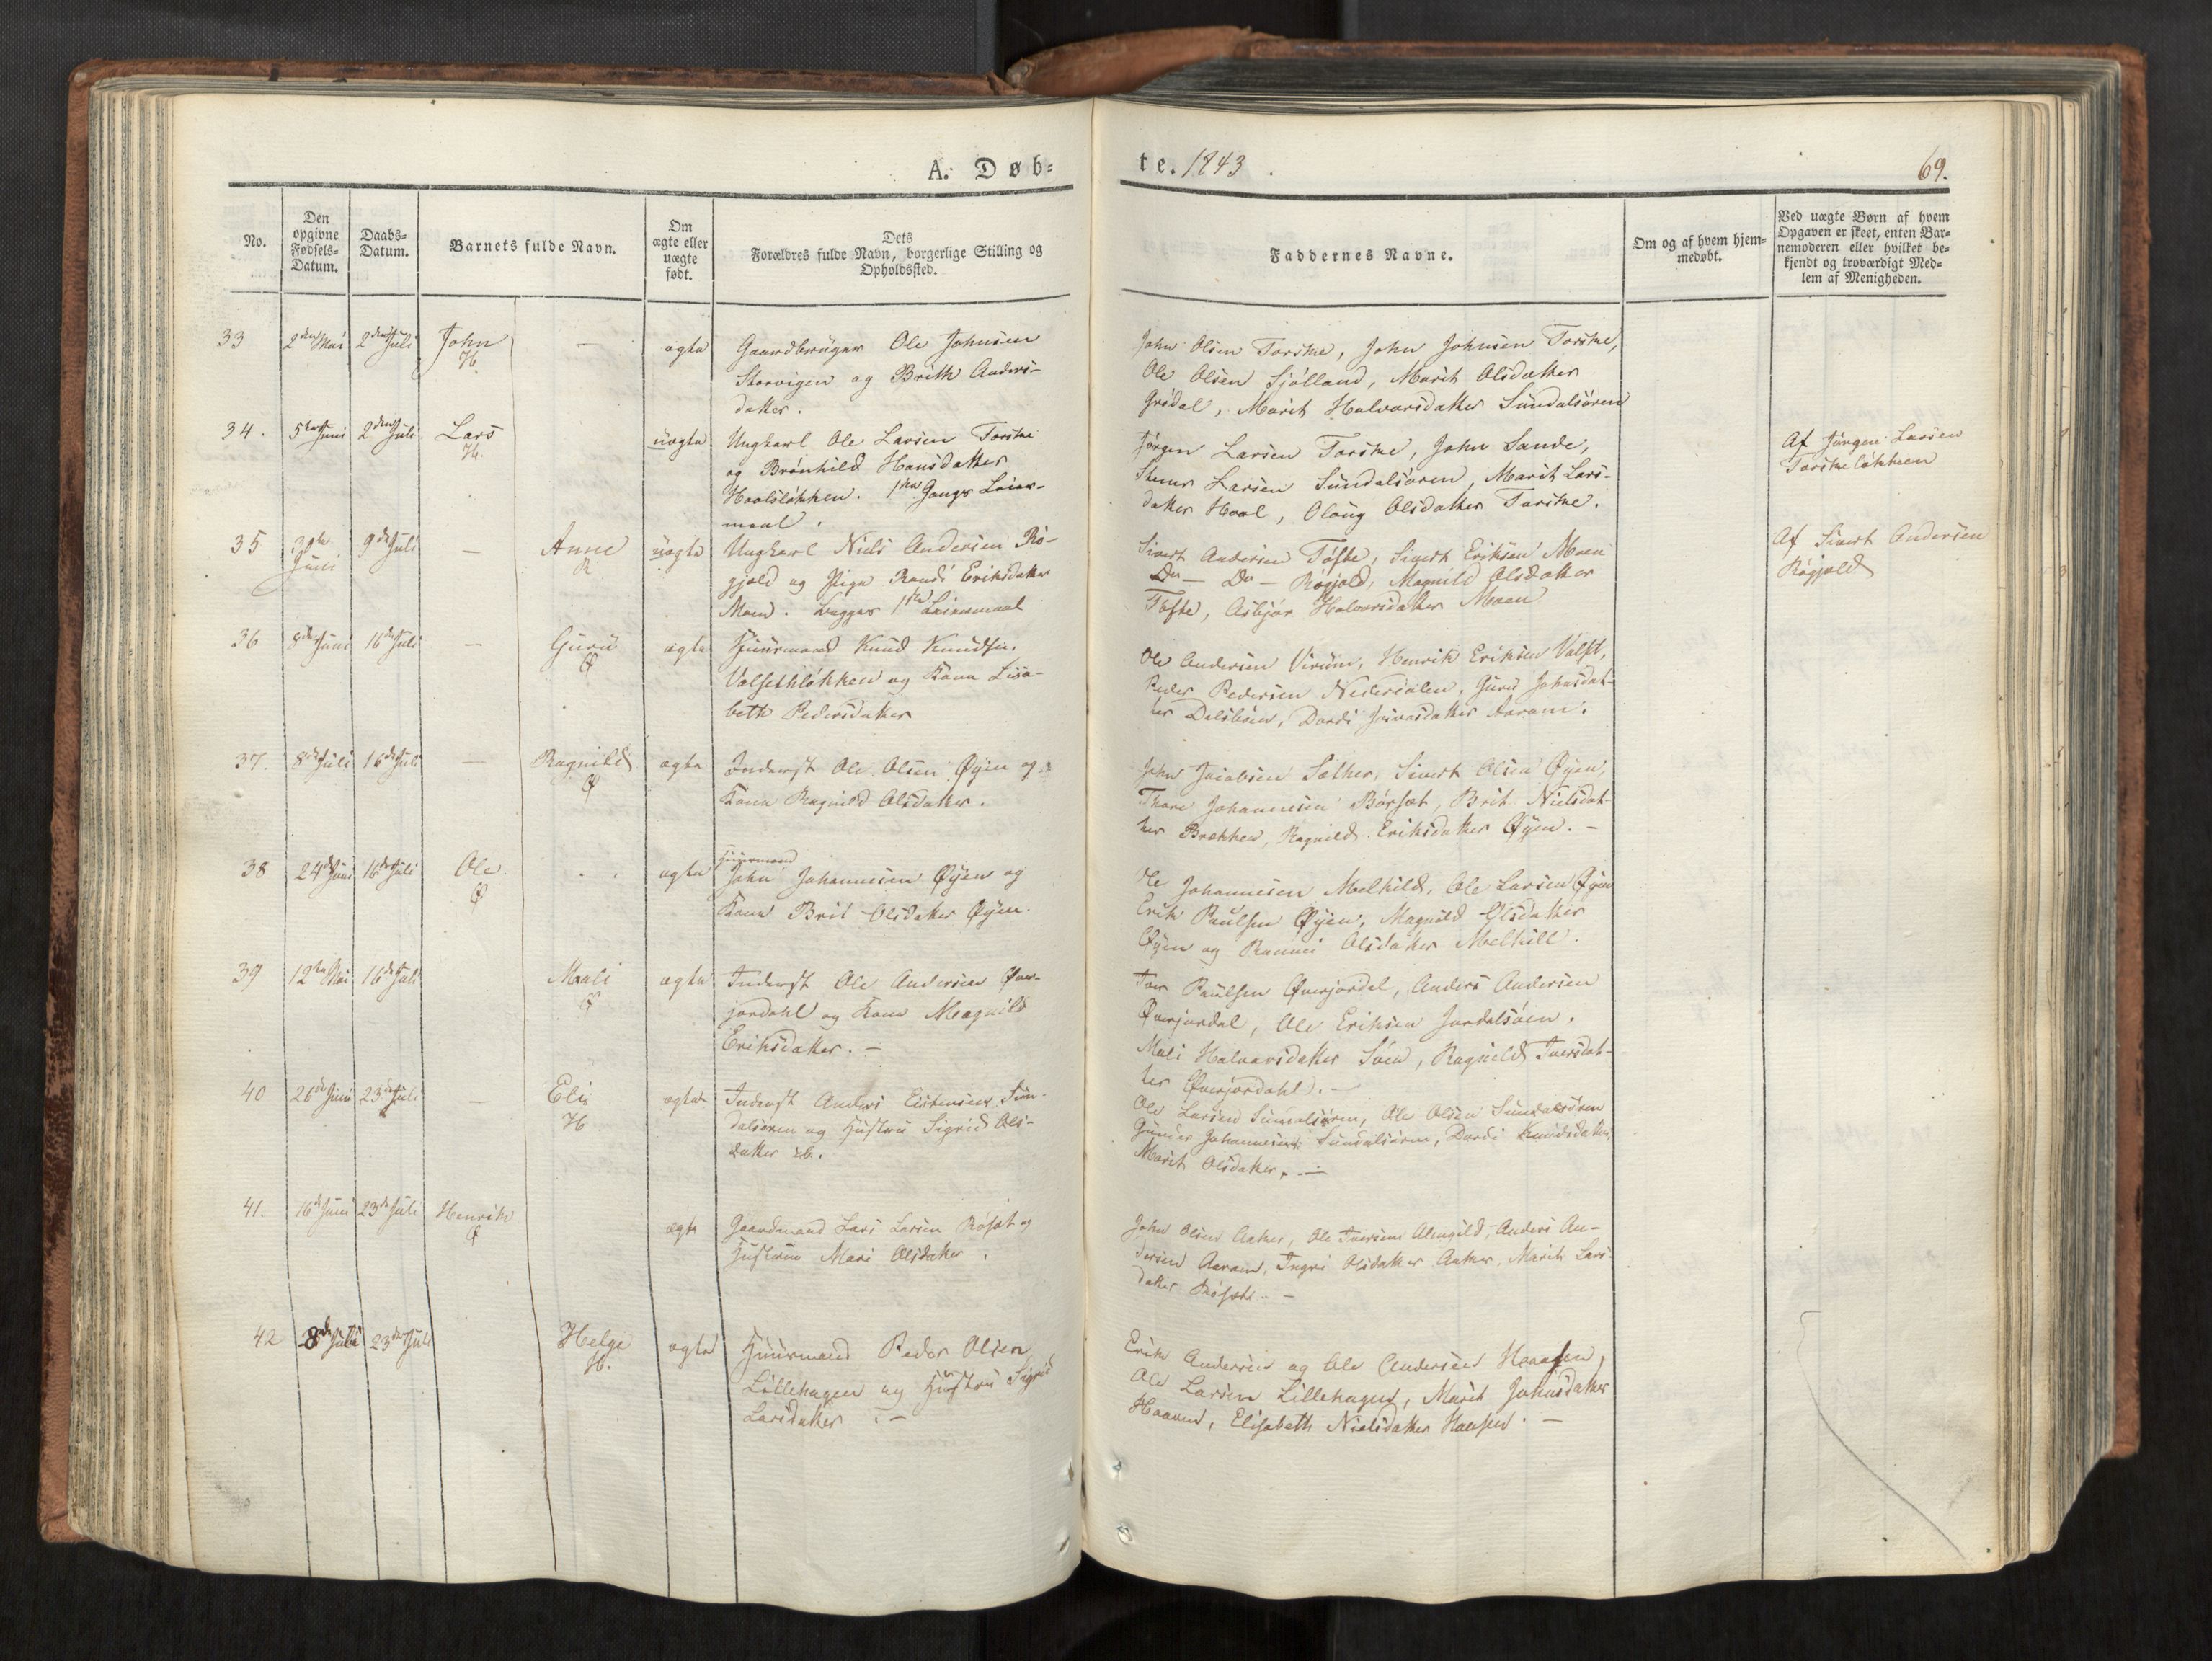 A. Døb=
te. 1843
69.
No.
Den opgivne Fødsels= Datum.
Daabs= Datum.
Barnets fulde Navn.
Om ægte eller uægte født.
Dets Forældres fulde Navn, borgerlige Stilling og Opholdssted.
Faddernes Navne.
Om og af hvem hjem= medøbt.
Ved uægte Børn af hvem Opgaven er skeet, enten Bar= nemoderen eller hvilket be= kjendt og troværdigt Med= lem af Menigheden.
33 2den Mai 2den Juli John H. — ægte Gaardbruger Ole Johnsen
Storvigen og Brith Anders-
datter.
John Olsen Torske, John Johnsen Torske,
Ole Olsen Sjølland, Marit Olsdatter
Grødal, Marit Halvorsdatter Sundalsøren
34. 5te Juni 2den Juli Lars H. uægte Ungkarl Ole Larsen Torske
og Brønhild Hansdatter
Hoelsløkken. 1ste Gangs Leier-
maal.
Jørgen Larsen Torske, John Sande,
Larsen Sundalsøren, Marit Lars-
datter Hoel, Olaug Olsdatter Torske.
Af Jørgen Larsen
Torskeløkken
35 Juni 9de Juli — Anne R uægte Ungkarl Niels Andersen Rø-
gjæld og Pige Randi Eriksdatter
Moen. Begges 1ste Leiermaal
Sivert Andersen Tøfte, Sivert Eriksen Moen
Do — Do — Røgjæld, Magnild Olsdatter
Tøfte, Asbjør Halvorsdatter Moen
Af Sivert Andersen
Røgjæld
36 8de Juni 16de Juli — Guru Ø ægte Huusmand Knud Knudsen
Valsethløkken og Kone Lisa-
beth Pedersdatter
Ole Andersen Virum, Henrik Eriksen Valset,
Peder Pedersen Nedredalen, Guru Johnsdat-
ter Dalsbøen, Dordi Iversdatter Aaram.
37. 8de Juli 16de Juli — Ragnild Ø ægte Inderst Ole Olsen Øyen og
Kone Ragnild Olsdatter.
John Jacobsen Sæther, Sivert Olsen Øyen,
Thore Johannesen Børset, Brit Nielsdat-
ter Brækken, Ragnild Eriksdatter Øyen. —
38 24de Juni 16de Juli Ole Ø ægte Huusmand
John Johannesen Øyen og
Kone Brit Olsdatter Øyen.
Ole Johannesen Melkild, Ole Larsen Øyen
Erik Paulsen Øyen, Magnild Olsdatter
Øyen og Rannei Olsdatter Melkill.
39 12te Mai 16de Juli Mali Ø ægte Inderst Ole Andersen Øver-
jordahl og Kone Magnild
Eriksdatter. —
Tore Paulsen Øverjordal, Anders Andersen
Øverjordal, Ole Eriksen Jordalsøien.
Mali Halvorsdatter Søen, Ragnild Toersdat-
ter Øverjordahl. —
40 26de Juni 23de Juli — Eli H ægte Inderst Anders Eistensen Sun-
dalsøren og Hustru Sigrid Ols-
datter ib.
Ole Larsen Sundalsøren, Ole Olsen Sundalsøren
Gunder Johannesen Sundalsøren, Dordi Knudsdatter,
Marit Olsdatter. —
41. 16de Juni 23de Juli Henrik Ø ægte Gaardmand Lars Larsen Røset og
Hustrue Mari Olsdatter.
John Olsen Aaker, Ole Toersen Almgild, Anders An-
dersen Aaram, Ingri Olsdatter Aaker, Marit Lars-
datter Røset. —
42 8de Juli 23de Juli Helge H. ægte Huusmand Peder Olsen
Lillehagen og Hustru Sigrid
Larsdatter. —
Erik Andersen og Ole Andersen Hoaasen,
Ole Larsen Lillehagen, Marit Johnsdatter
Elisabeth Nielsdatter